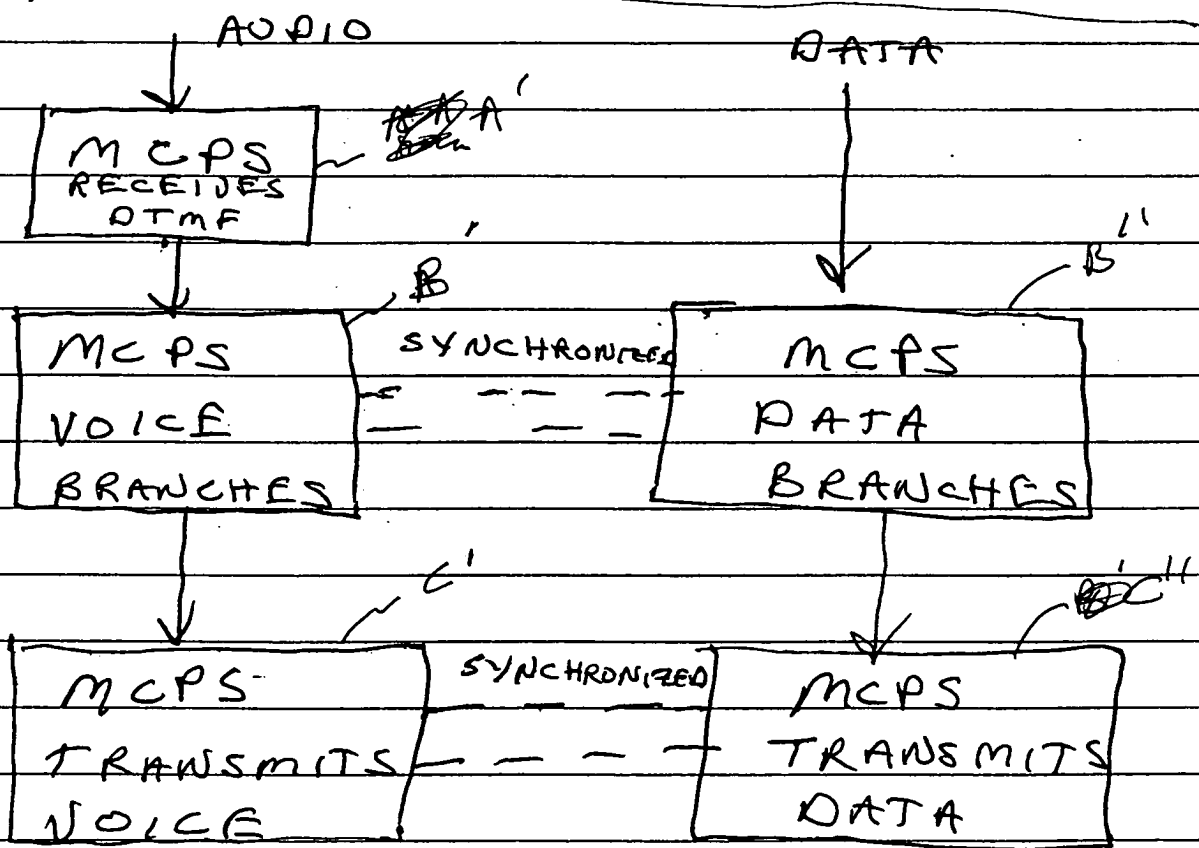 AUDIO
DATA
A'
MCPS
RECEIVES
DTMF
B'
B''
MCPS
VOICE
BRANCHES
SYNCHRONIZED
MCPS
DATA
BRANCHES
C'
C''
MCPS
TRANSMITS
VOICE
SYNCHRONIZED
MCPS
TRANSMITS
DATA